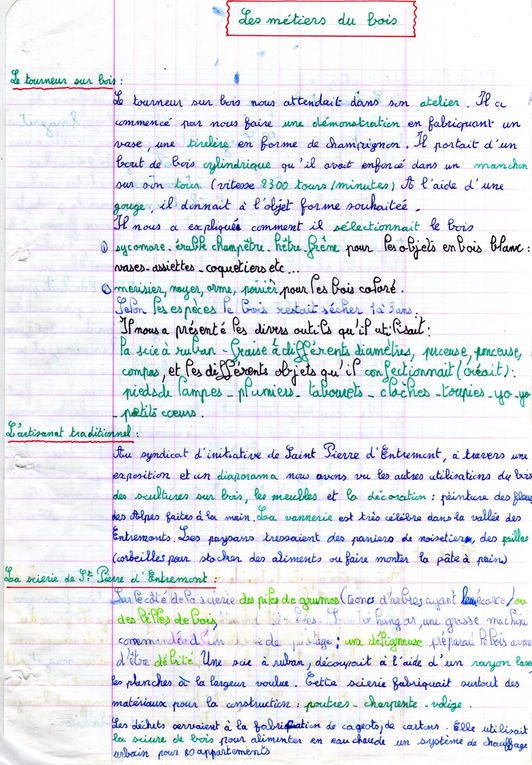 Les métiers du bois
Le tourneur sur bois :
Le tourneur sur bois nous attendait dans son atelier. Il a
commencé par nous faire une démonstration en fabriquant un
vase, une tirelire en forme de champignon. Il partait d'un
bout de bois cylindrique qu'il avait enfoncé dans un manchon
sur son tour (vitesse 2300 tours/minutes) A l'aide d'une
gouge, il donnait à l'objet forme souhaitée.
Il nous a expliqué comment il sélectionnait le bois
① sycomore - érable champêtre - hêtre - frêne pour les objets en bois blanc :
vases - assiettes - coquetiers etc...
② merisier, noyer, orme, poirier, pour les bois coloré.
Selon les espèces le bois restait sécher 1 à 3 ans.
Il nous a présenté les divers outils qu'il utilisait :
la scie à ruban - fraise à différents diamètres, perceuse, ponceuse,
compas, et les différents objets qu'il confectionnait (créait) :
pieds de lampes - pluniers - tabourets - cloches - toupies - yo-yo
petits cœurs.
L'artisanat traditionnel :
Au syndicat d'initiative de Saint Pierre d'Entremont, à travers une
exposition et un diaporama nous avons vu les autres utilisations du bois
des scultures sur bois, les meubles et la décoration : peinture des fleurs
des Alpes faites à la main. La vannerie est très célèbre dans la vallée des
Entremonts. Les paysans tressaient des paniers de noisetiers, des pailles
(corbeilles pour stocher des aliments ou faire monter la pâte à pain)
La scierie de St Pierre d'Entremont :
Sur le côté de la scierie des piles de grumes (troncs d'arbres ayant écorce) ou
des billes de bois, hangar, une grosse machine
commandée d'un de pilotage : une déligneuse préparait le bois avant
d'être débité. Une scie à ruban, découpait à l'aide d'un rayon laser
les planches à la largeur voulue. Cette scierie fabriquait surtout des
matériaux pour la construction : poutres - charpente - volige.
Les déchets servaient à la fabrication de cagots, de cartons. Elle utilisait
la sciure de bois pour alimenter en eau chaude un système de chauffage
urbain pour 80 appartements